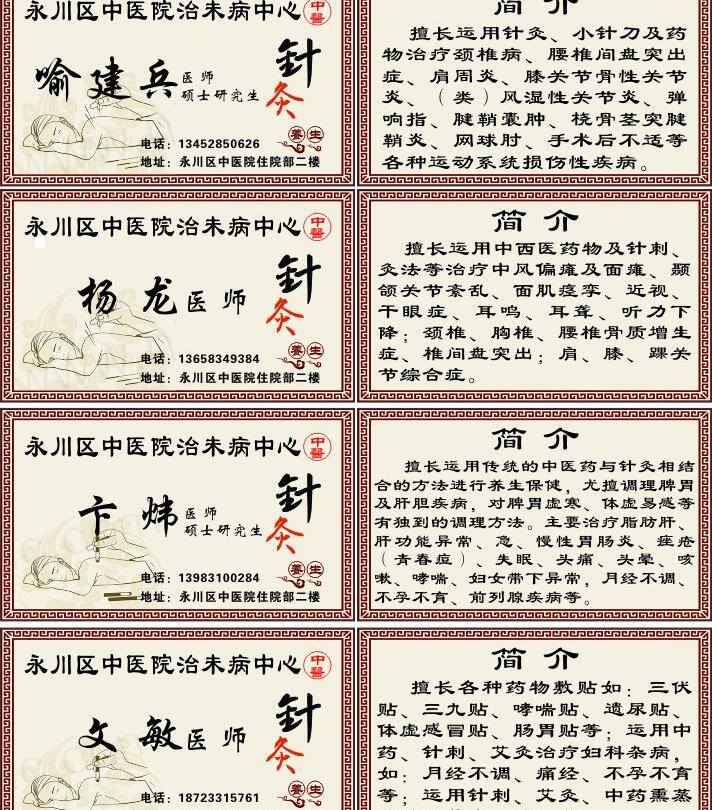 永川区中医院治未病中心
中醫
喻建兵 医师
硕士研究生
針灸
養生
电话：13452850626
地址：永川区中医院住院部二楼
简介
擅长运用针灸、小针刀及药
物治疗颈椎病、腰椎间盘突出
症、肩周炎、膝关节骨性关节
炎、（类）风湿性关节炎、弹
响指、腱鞘囊肿、桡骨茎突腱
鞘炎、网球肘、手术后不适等
各种运动系统损伤性疾病。
永川区中医院治未病中心
中醫
杨龙 医师
針灸
養生
电话：13658349384
地址：永川区中医院住院部二楼
简介
擅长运用中西医药物及针刺、
灸法等治疗中风偏瘫及面瘫、颞
颌关节紊乱、面肌痉挛、近视、
干眼症、耳鸣、耳聋、听力下
降；颈椎、胸椎、腰椎骨质增生
症、椎间盘突出；肩、膝、踝关
节综合症。
永川区中医院治未病中心
中醫
卞炜 医师
硕士研究生
針灸
養生
电话：13983100284
地址：永川区中医院住院部二楼
简介
擅长运用传统的中医药与针灸相结
合的方法进行养生保健，尤擅调理脾胃
及肝胆疾病，对脾胃虚寒、体虚易感等
有独到的调理方法。主要治疗脂肪肝、
肝功能异常、急、慢性胃肠炎、痤疮
（青春痘）、失眠、头痛、头晕、咳
嗽、哮喘、妇女带下异常，月经不调、
不孕不育、前列腺疾病等。
永川区中医院治未病中心
中醫
文敏 医师
針灸
養生
电话：18723315761
简介
擅长各种药物敷贴如：三伏
贴、三九贴、哮喘贴、遗尿贴、
体虚感冒贴、肠胃贴等；运用中
药、针刺、艾灸治疗妇科杂病，
如：月经不调、痛经、不孕不育
等；运用针刺、艾灸、中药熏蒸